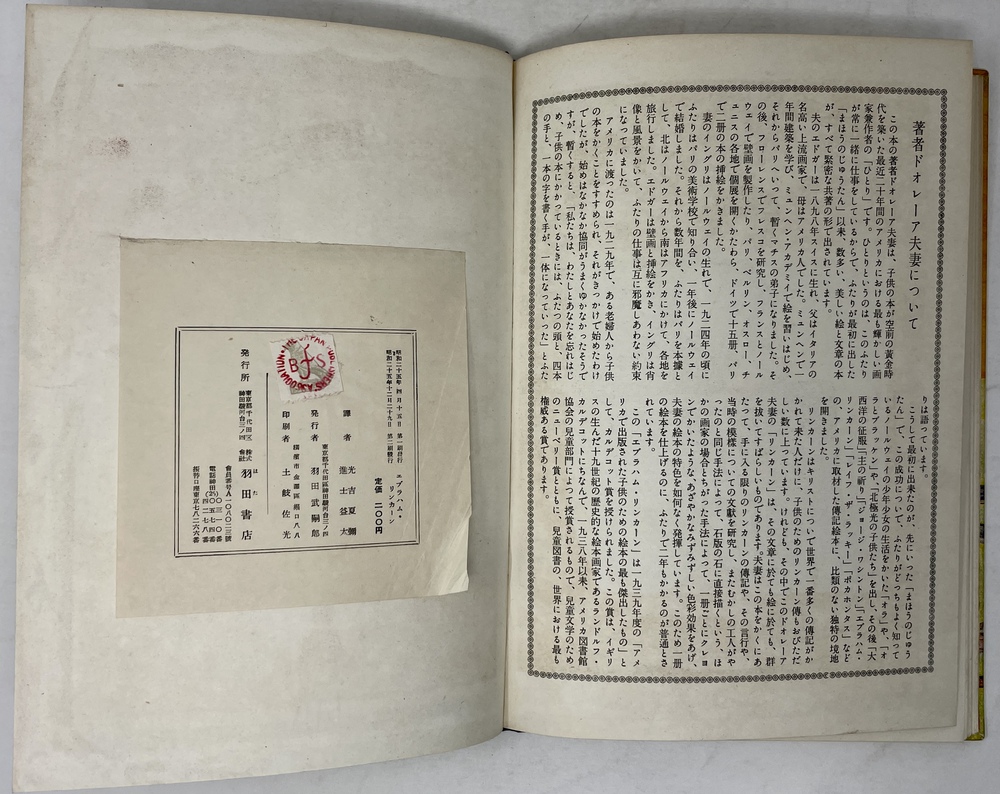 著者ドオレーア夫妻について
この本の著者ドオレーア夫妻は、子供の本が空前の黄金時
代を築いた最近二十年間のアメリカにおける最も輝かしい画
家兼作者の「ひとり」です。ひとりというのは、このふたり
が常に一緒に仕事をしているからで、ふたりが最初に出した
「まほうのじゅうたん」以来、数多い、美しい絵と文章の本
が、すべて緊密な共著の形で出されています。
夫のエドガーは一八九八年スイスに生れ、父はイタリアの
名高い上流画家で、母はアメリカ人でした。ミュンヘンで一
年間建築を学び、ミュンヘン・アカデミイで絵を習いはじめ、
それからパリへいって、暫くマチスの弟子になりました。そ
の後、フローレンスでフレスコを研究し、フランスとノール
ウェイで壁画を製作したり、パリ、ベルリン、オスロー、チ
ュニスの各地で個展を開くかたわら、ドイツで十五册、パリ
で二册の本の挿絵をかきました。
妻のイングリはノールウェイの生れで、一九二四年の頃に
ふたりはパリの美術学校で知り合い、一年後にノールウェイ
で結婚しました。それから数年間を、ふたりはパリを本據と
して、北はノールウェイから南はアフリカにかけて、各地を
旅行しました。エドガーは壁画と挿絵をかき、イングリは肖
像と風景をかいて、ふたりの仕事は互に邪魔しあわない約束
になっていました。
アメリカに渡ったのは一九二九年で、ある老婦人から子供
の本をかくことをすすめられ、それがきっかけで始めたわけ
でしたが、始めはなかなか協同がうまくゆかなかったそうで
すが、暫くすると、「私たちは、わたしとあなたを忘れはじ
め、子供の本にかかっているときには、ふたつの頭と、四本
の手と、一本の字を書く手が、一体になっていった」とふた
りは語っています。
こうして最初に出来たのが、先にいった「まほうのじゅう
たん」で、この成功について、ふたりがどっちもよく知って
いるノールウェイの少年少女の生活をかいた「オラ」や、「オ
ラとブラッケン」や、「北極光の子供たち」を出し、その後「大
西洋の征服」「主の祈り」「ジョージ・ワシントン」「エブラハム・
リンカーン」「レイフ・ザ・ラッキー」「ポカホンタス」など
の、アメリカに取材した傳記絵本に、比類のない独特の境地
を開きました。
リンカーンはキリストについで世界で一番多くの傳記がか
かれて来た人だけに、子供のためのリンカーン傳もおびただ
しい数に上っています。けれども、その中でこのドオレーア
夫妻の「リンカーン」は、その文章に於ても絵に於ても、群
を抜いてすばらしいものであります。夫妻はこの本をかくにあ
たって、手に入る限りのリンカーンの傳記や、その言行や、
当時の模様についての文献を研究し、またむかしの工人がや
ったのと同じ手法によって、石版の石に直接描くという、ほ
かの画家の場合とちがった手法によって、一册ごとにクレヨ
ンでかいたような、あざやかなみずみずしい色彩効果をあげ、
夫妻の絵本の特色を如何なく発揮しています。このため一册
の絵本を仕上げるのに、ふたりで二年もかかるのが普通とさ
れています。
この「エブラハム・リンカーン」は一九三九年度の「アメ
リカで出版された子供のための絵本の最も傑出したもの」と
して、カルデコット賞を授けられました。この賞は、イギリ
スの生んだ十九世紀の歴史的な絵本画家であるランドルフ・
カルデコットにちなんで、一九三八年以来、アメリカ図書館
協会の兒童部門によって授賞されるもので、兒童文学のため
のニューベリー賞とともに、兒童図書の、世界における最も
権威ある賞であります。
エブラハム・
リンカーン
定價 二〇〇円
昭和二十五年 四月十五日 第一刷発行
昭和二十五年十二月二十九日 第二刷発行
THE JAPAN PUBLISHERS ASSOCIATION
譯者 光吉夏彌
進士益太
東京都千代田區神田駿河台三ノ四
発行者 羽田武嗣郎
印刷者 土岐佐光
発行所
東京都千代田区
神田駿河台三ノ四
株式
會社
羽田書店
はた
會員番号A一〇八〇二三號
振替口座東京七六二六六番